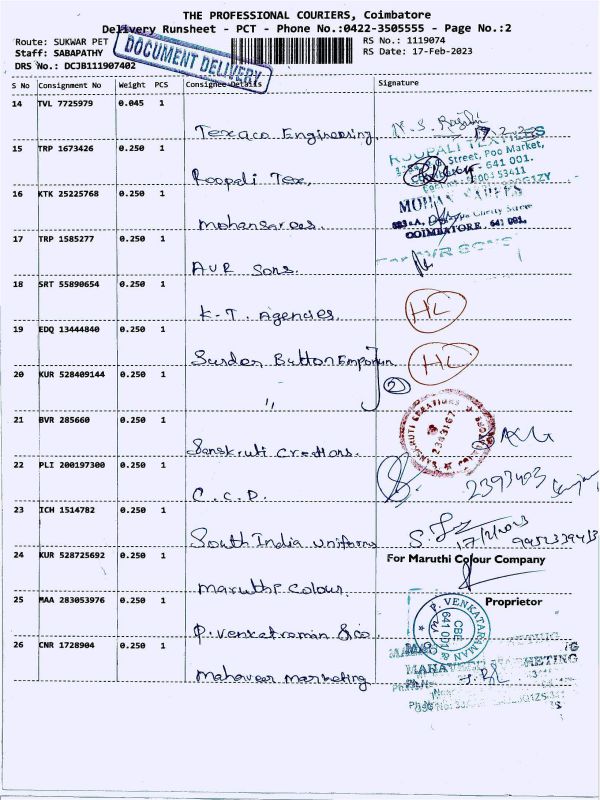 THE PROFESSIONAL COURIERS, Coimbatore
Delivery Runsheet - PCT - Phone No.:0422-3505555 - Page No.:2
Route: SUKWAR PET
RS No.: 1119074
Staff: SABAPATHY
RS Date: 17-Feb-2023
DRS No.: DCJB111907402
DOCUMENT DELIVERY
S No Consignment No Weight PCS Consignee Details Signature
14 TVL 7725979 0.045 1
Texaco Engineering
15 TRP 1673426 0.250 1
ROOPALI TEXTILES
Street, Poo Market,
641 001.
Roopali Tex,
16 KTK 25225768 0.250 1
MOHAN SAREES
Mohansarees.
COIMBATORE. 641 001.
17 TRP 1585277 0.250 1
AVR SONS
AVR Sons.
18 SRT 55890654 0.250 1
K.T. Agencies. HL
19 EDQ 13444840 0.250 1
Surder Button Emporium HL
20 KUR 528409144 0.250 1
" 2
21 BVR 285660 0.250 1
SANSKRUTI CREATIONS
Sanskruti Creations.
22 PLI 200197300 0.250 1
C.C.D. 2393403
23 ICH 1514782 0.250 1
South India uniforms 17/2/2023
24 KUR 528725692 0.250 1
For Maruthi Colour Company
Maruthi Colour.
25 MAA 283053976 0.250 1
Proprietor
P. VENKATARAMAN & CO
CBE
641 001
P. Venkatraman & co
26 CNR 1728904 0.250 1
MAHAVEER MARKETING
Mahaveer marketing